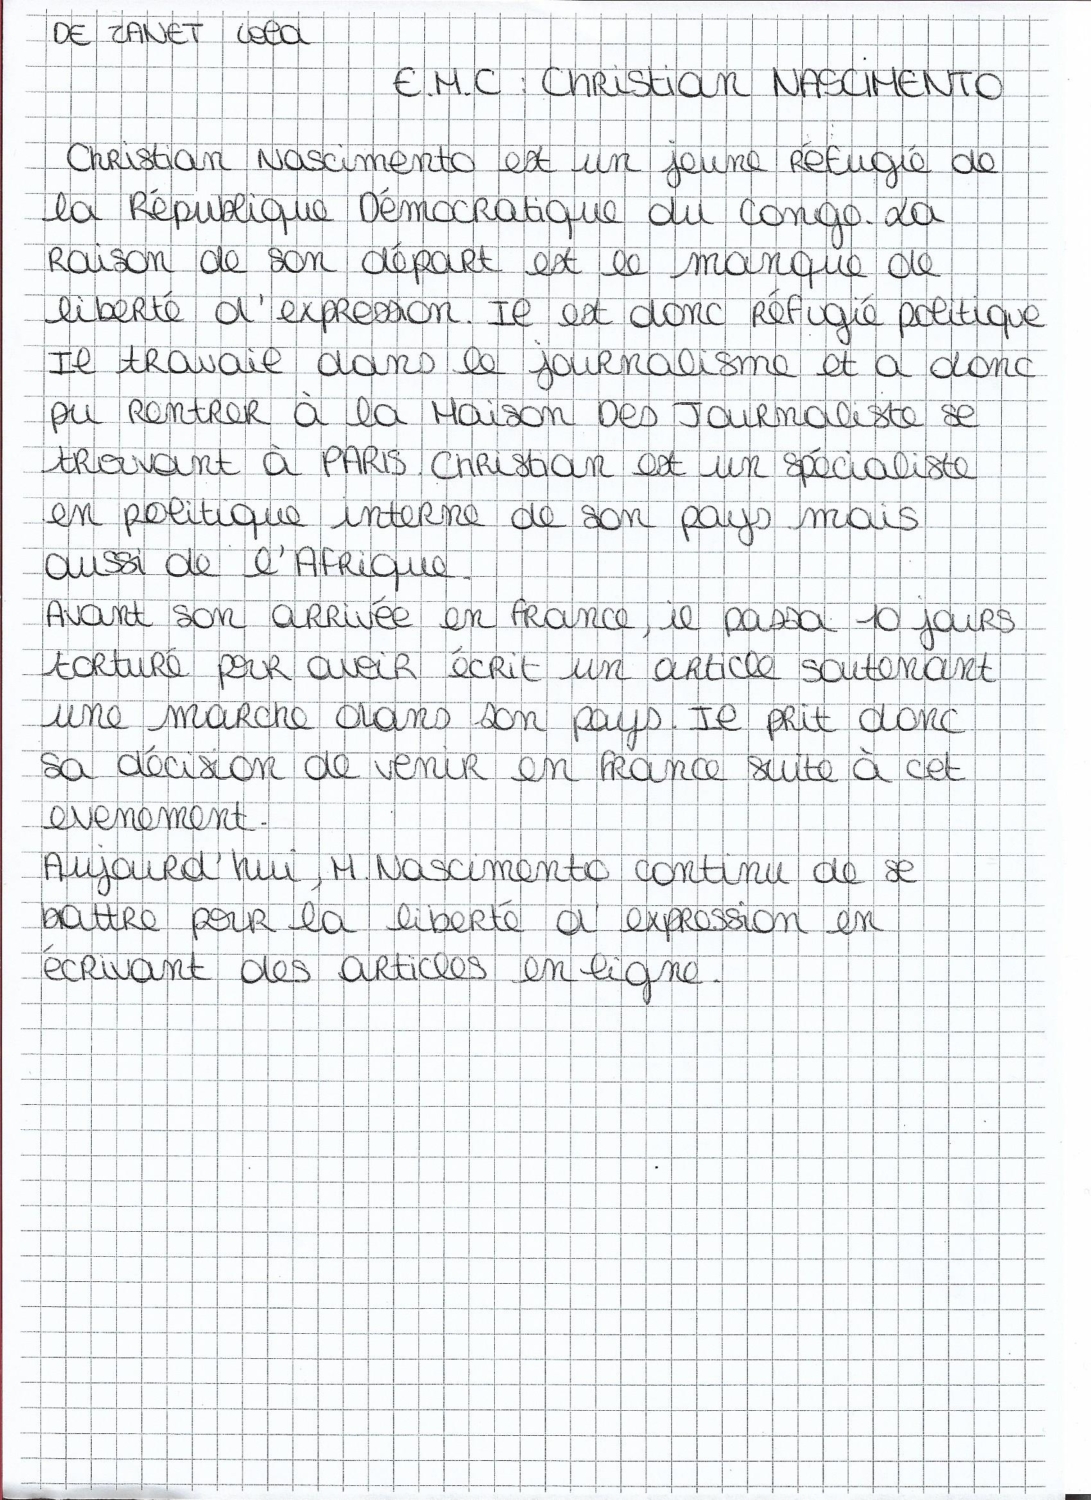 DE ZANET Lola
E.M.C : Christian NASCIMENTO
Christian Nascimento est un jeune Réfugié de
la République Démocratique du Congo. La
Raison de son départ est le manque de
liberté d'expression. Il est donc Réfugié politique
Il travail dans le journalisme et a donc
pu Rentrer à la Maison Des Journaliste se
trouvant à PARIS. Christian est un spécialiste
en politique interne de son pays mais
aussi de l'Afrique.
Avant son arrivée en france, il passa 10 jours
torturé pour avoir écrit un article soutenant
une marche dans son pays. Il prit donc
sa décision de venir en france suite à cet
evenement.
Aujourd'hui, M. Nascimento continu de se
battre pour la liberté d'expression en
écrivant des articles en ligne.